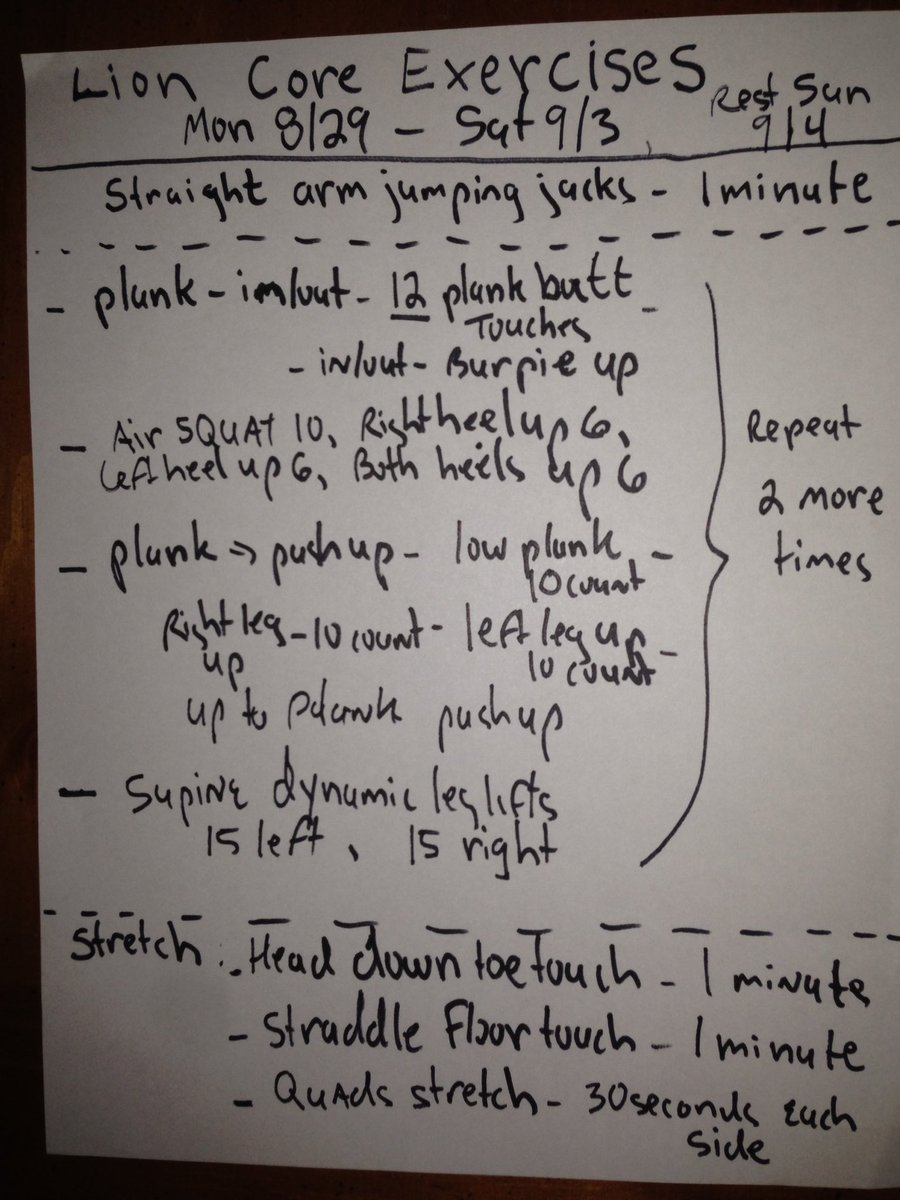 Lion Core Exercises
Mon 8/29 - Sat 9/3
Rest Sun
9/4
Straight arm jumping jacks - 1 minute
- plank - in/out - 12 plank butt -
Touches
- in/out - Burpie up
- Air SQUAT 10, Right heel up 6,
Left heel up 6, Both heels up 6
- plank → push up - low plank -
10 count
Right leg - 10 count - left leg up -
up
10 count
up to Plank pushup
- Supine dynamic leg lifts
15 left, 15 right
Repeat
2 more
times
Stretch: - Head down toe touch - 1 minute
- Straddle Floor touch - 1 minute
- Quads stretch - 30 seconds each
side